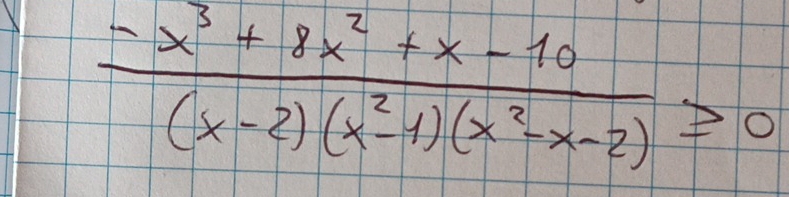 - x³ + 8x² + x - 10
(x-2)(x²-1)(x²-x-2) ≥ 0